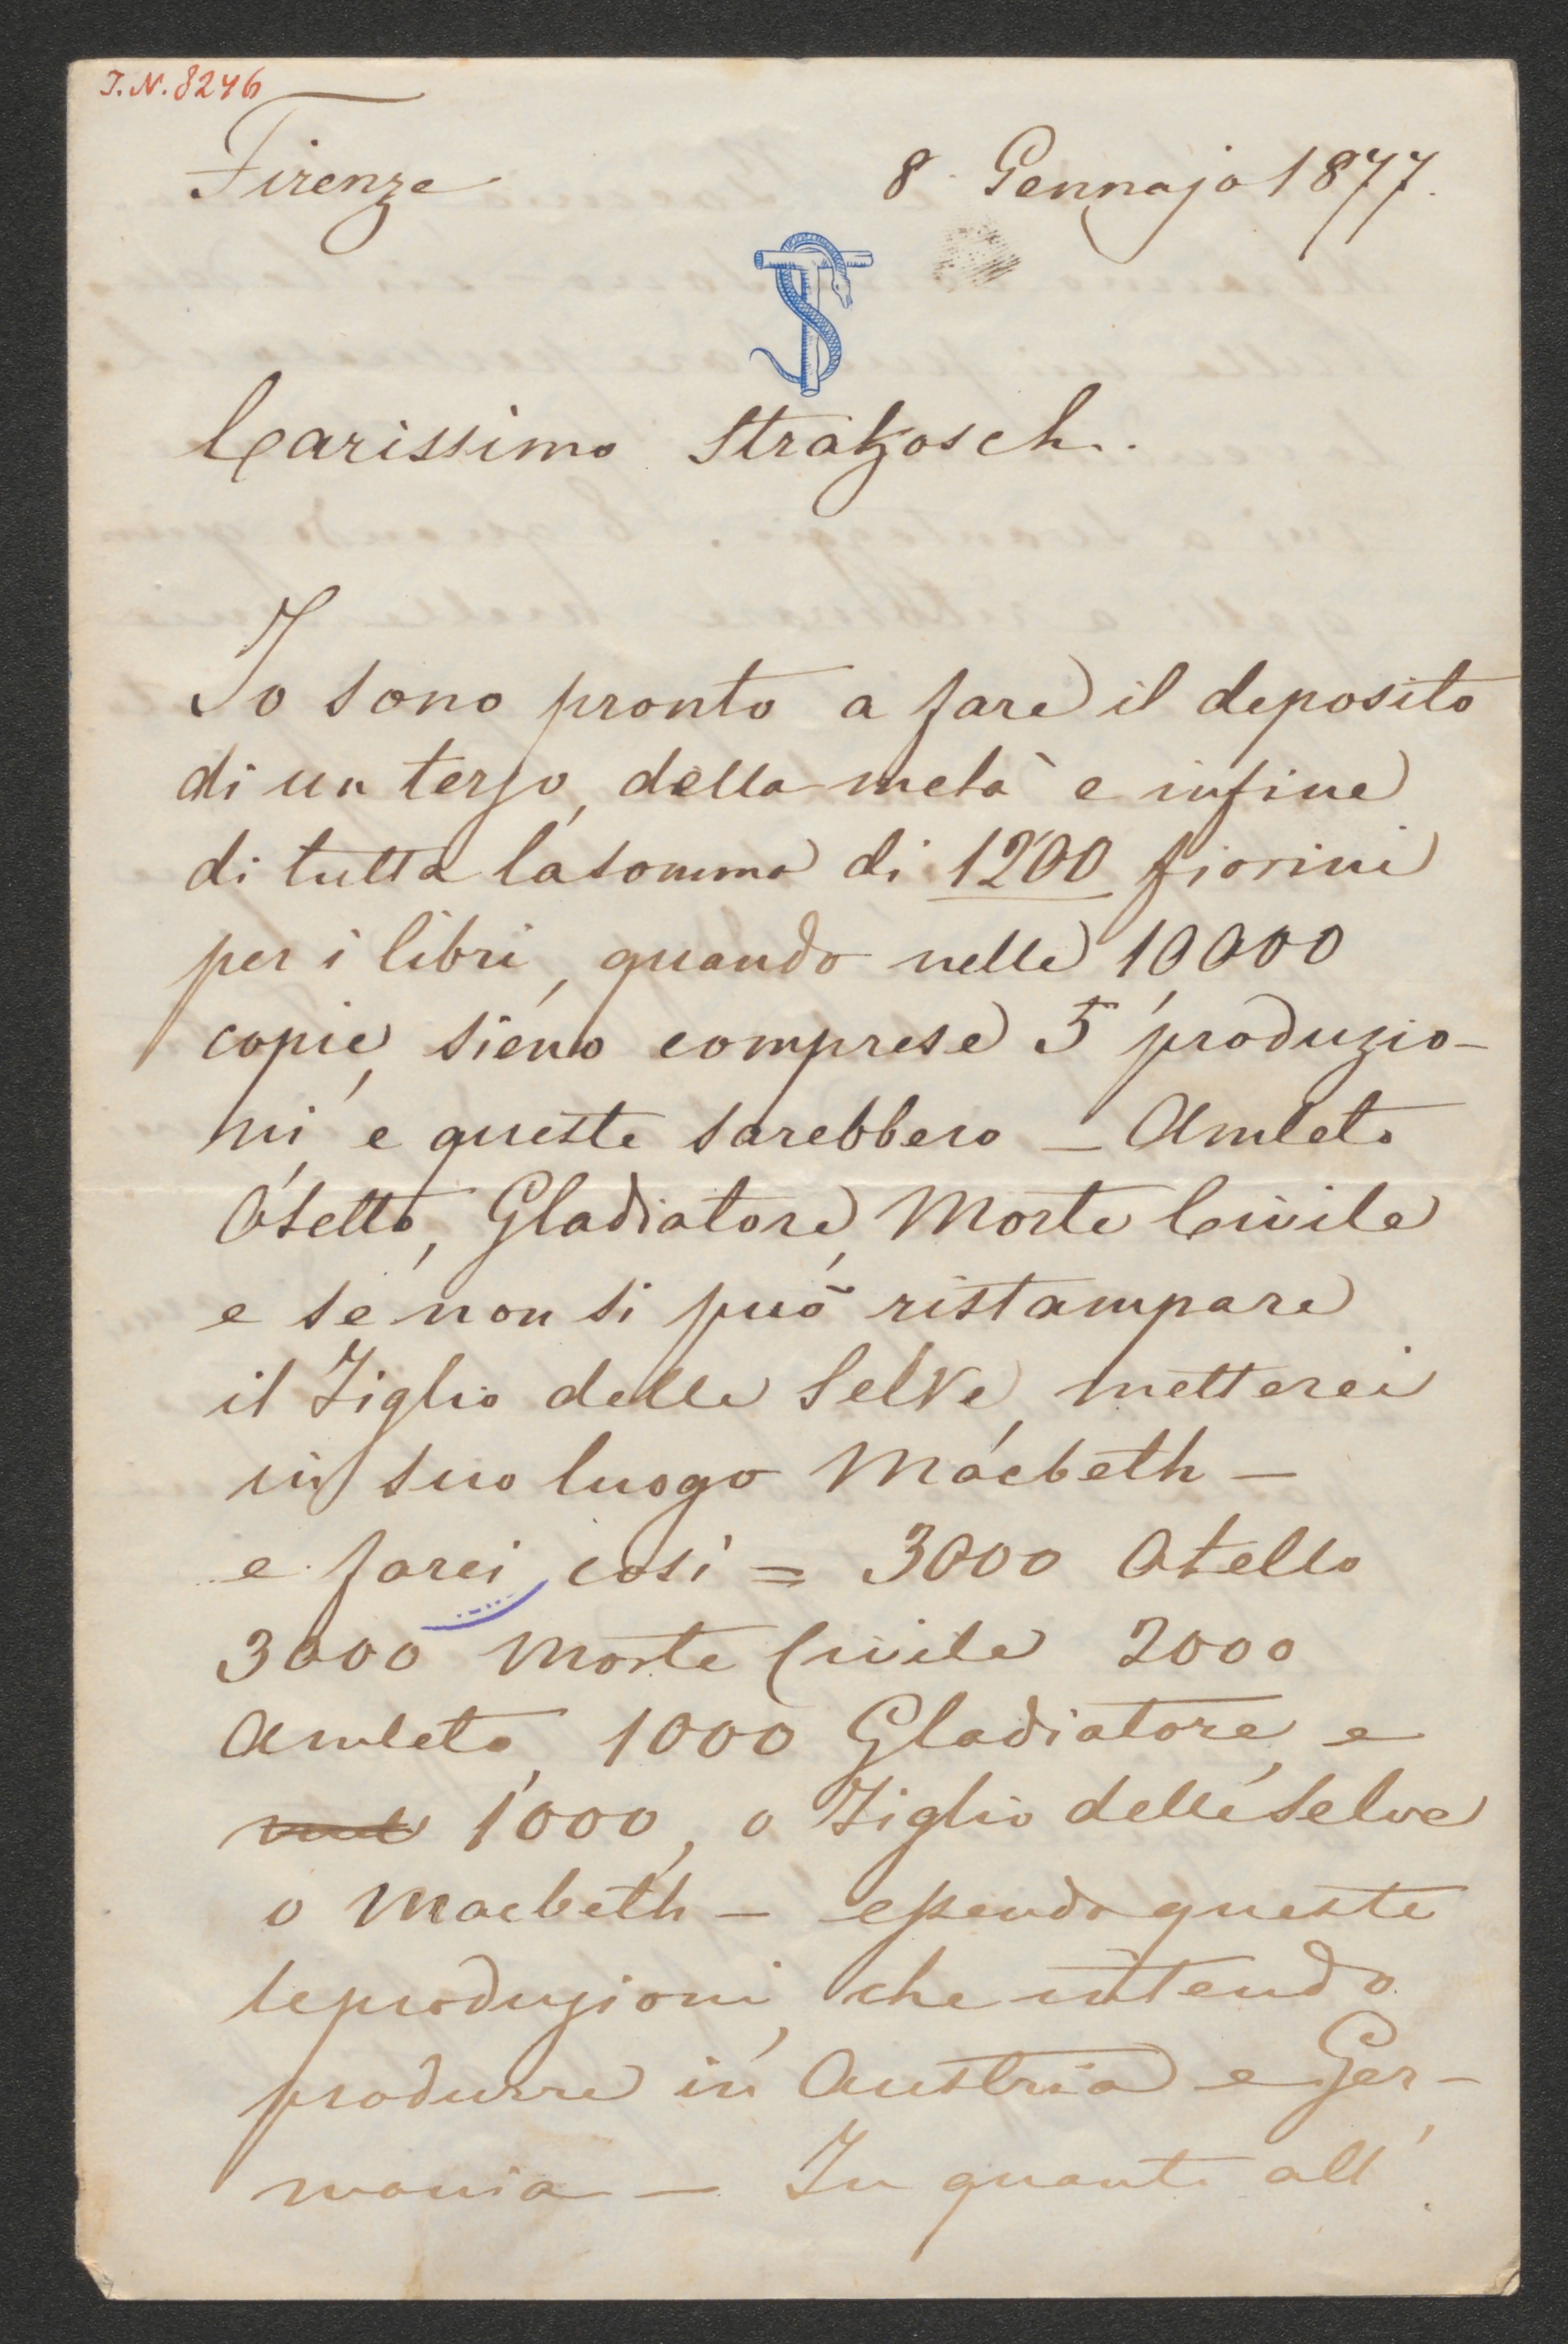 J.N. 8246
Firenze 8 Gennajo 1877.
Carissimo Strakosch.
Io sono pronto a fare il deposito
di un terzo, della metà e infine
di tutta la somma di 1200 fiorini
per i libri, quando nelle 10,000
copie, sieno comprese 5 produzio-
ni, e queste sarebbero — Amleto
Otello, Gladiatore, Morte Civile
e se non si può ristampare
il Figlio delle Selve, metterei
in suo luogo Macbeth —
e farei così = 3000 Otello
3000 Morte Civile 2000
Amleto, 1000 Gladiatore, e
1000, o Figlio delle Selve
o Macbeth — essendo queste
le produzioni, che intendo
produrre in Austria e Ger-
mania — In quanto all'